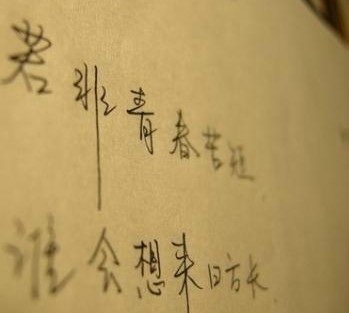 若非青春苦短
谁会想来日方长